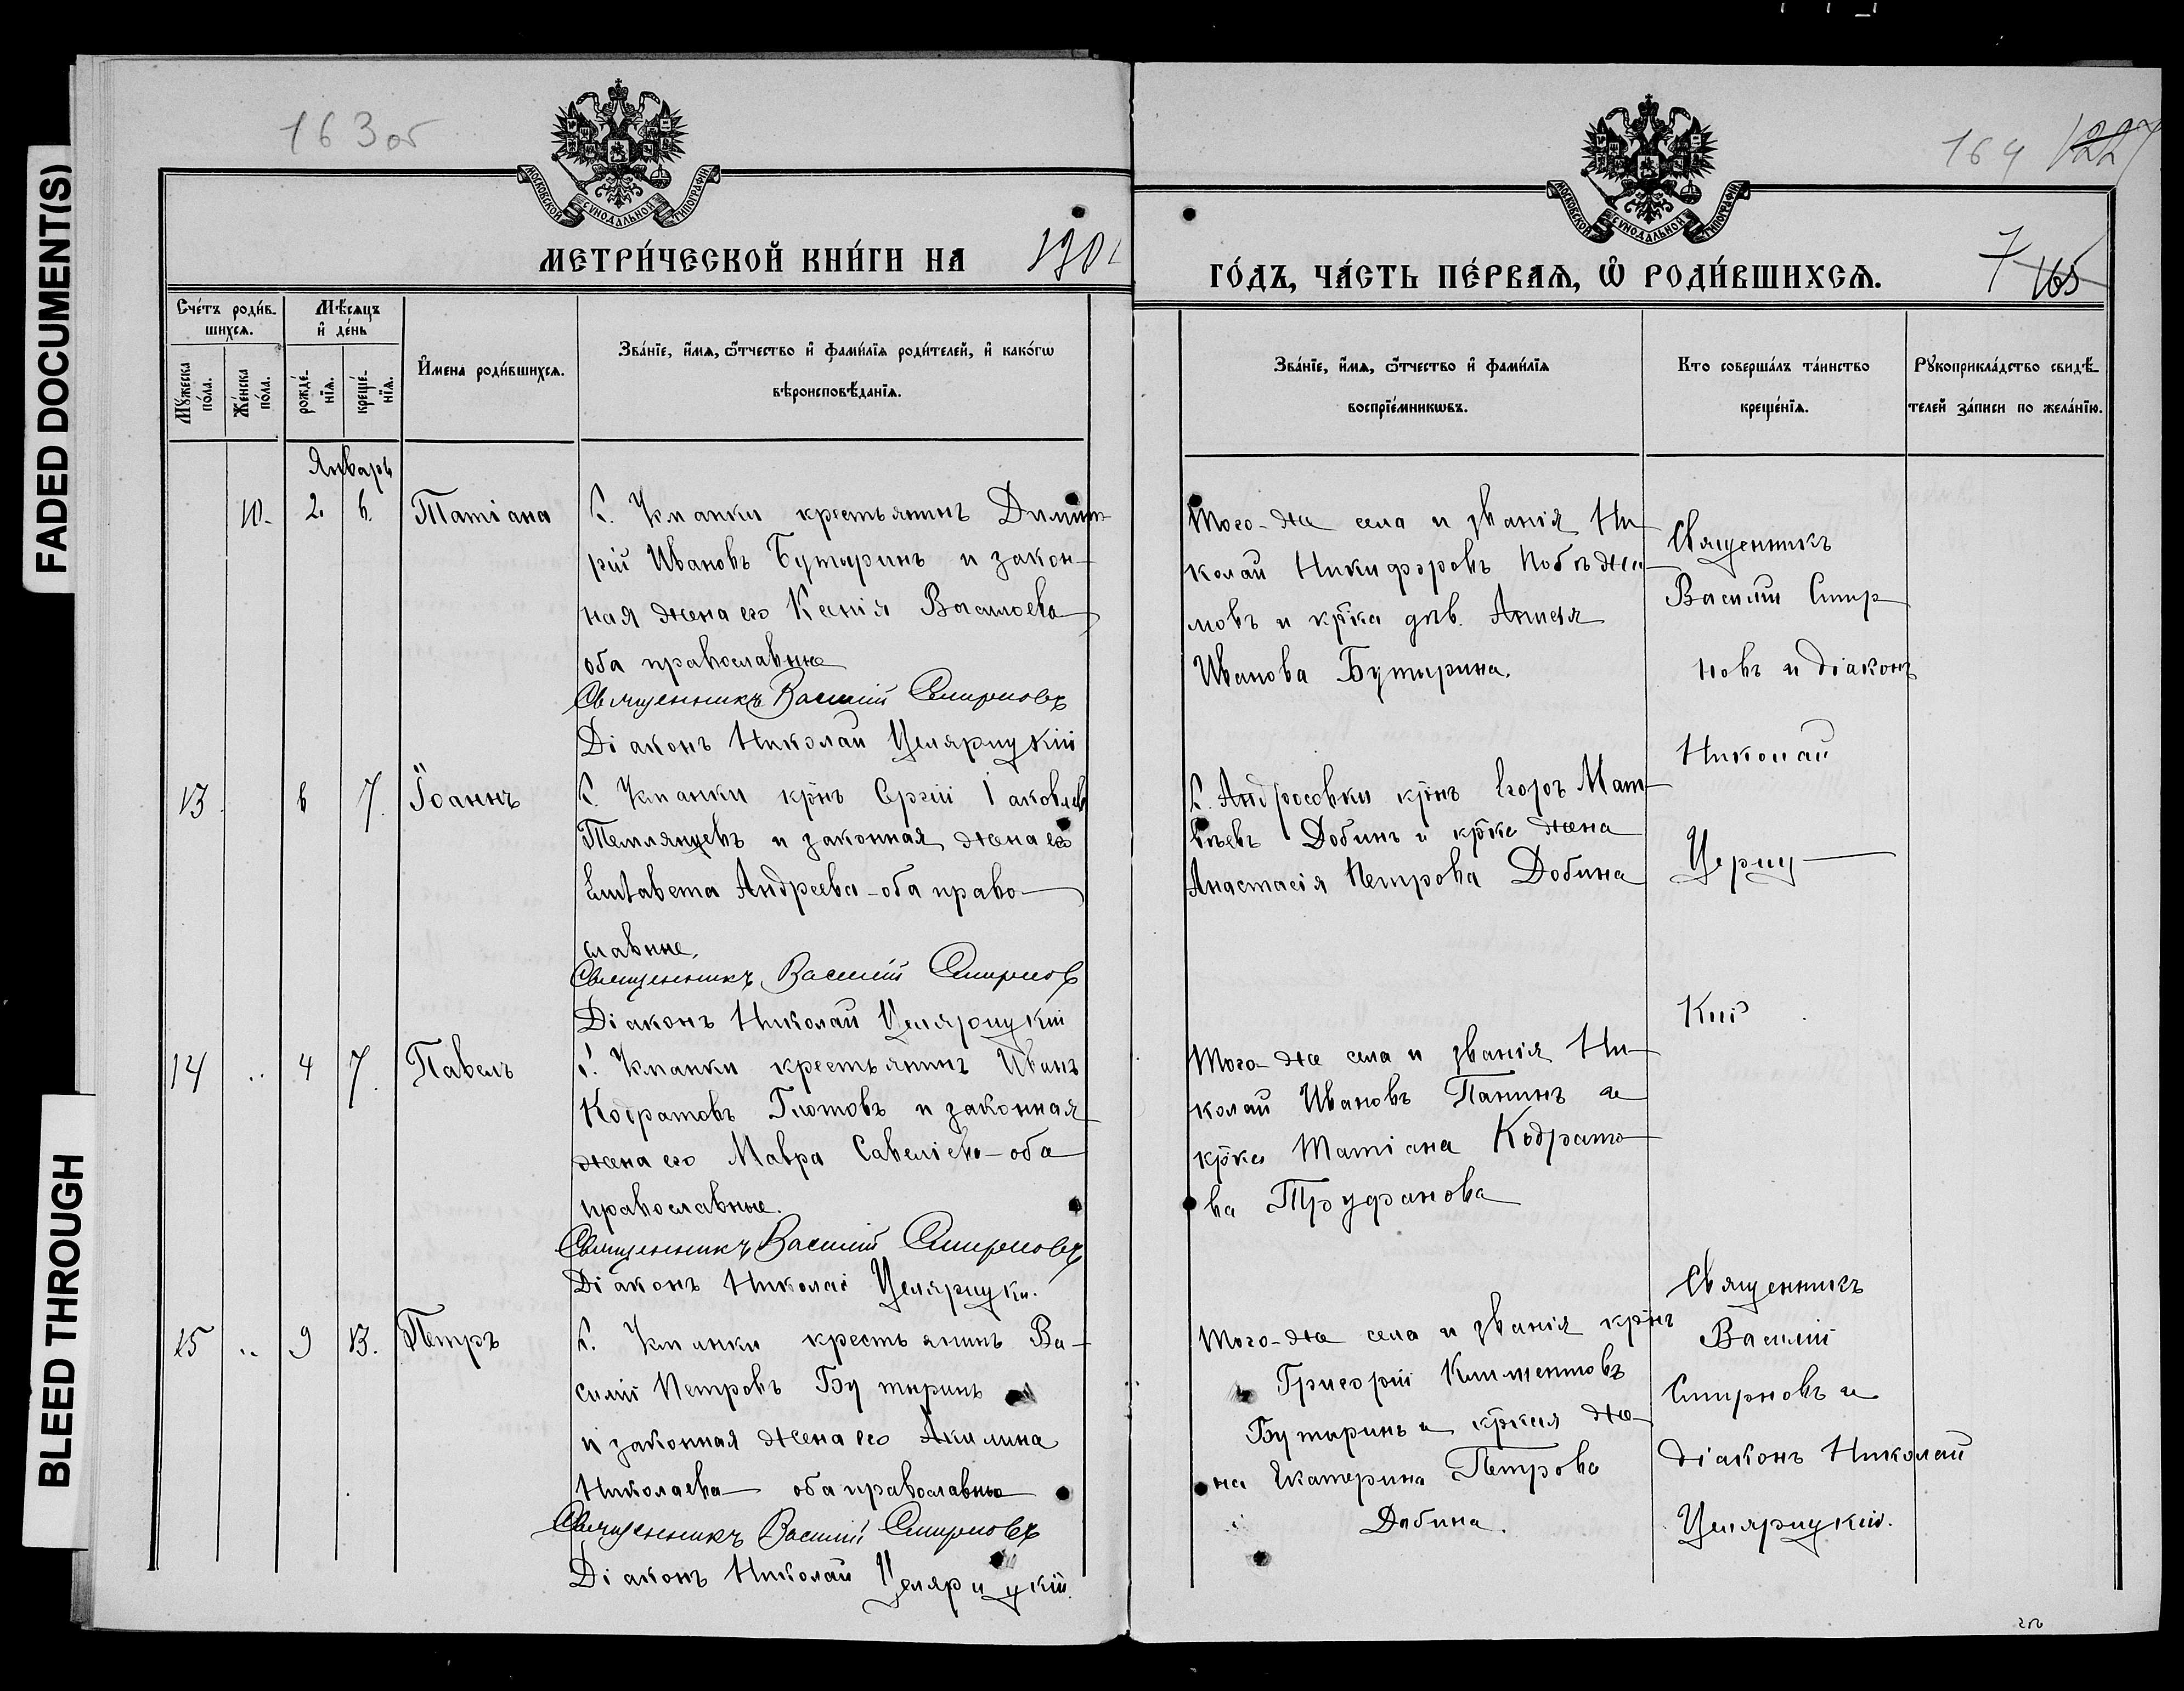 FADED DOCUMENT(S)
BLEED THROUGH
163 об
МОСКОВСКОЙ СѴНОДАЛЬНОЙ ТИПОГРАФІИ
МЕТРИ́ЧЕСКОЙ КНИ́ГИ НА 1901
Сче́тъ роди́в-
шихсѧ.
Мꙋ́жеска по́ла.
Же́нска по́ла.
Мѣ́сѧцъ
и҆ де́нь
рожде́-нїѧ.
креще́-нїѧ.
И҆мена роди́вшихсѧ.
Зва́нїе, и҆́мѧ, ѻ҆́тчество и҆ фами́лїѧ роди́телей, и҆ како́гѡ
вѣроисповѣ́данїѧ.
Январь
10. 2. 6. Татіана
С. Уманки крестьянинъ Димит-
рій Ивановъ Бутыринъ и закон-
ная жена его Ксенія
оба православные
Священникъ Василій Смирновъ
Діаконъ Николай Целярицкій
13. 6 7. Іоаннъ
С. Уманки крнъ Сергій Іаковлев
и законная жена его
Елисавета Андреева - оба право-
славные.
Священникъ Василій Смирновъ
Діаконъ Николай Целярицкій
14 .. 4 7. Павелъ
С. Уманки крестьянинъ Иванъ
Кодратовъ Глотовъ и законная
жена его Мавра Савеліева - оба
православные.
Священникъ Василій Смирновъ
Діаконъ Николай Целярицкій
15 .. 9 13. Петръ
С. Уманки крестьянинъ Ва-
силій Петровъ Бутыринъ
и законная жена его Акилина
Николаева - оба православные
Священникъ Василій Смирновъ
Діаконъ Николай Целярицкій.
164 1227
МОСКОВСКОЙ СѴНОДАЛЬНОЙ ТИПОГРАФІИ
ГО́ДЪ, ЧА́СТЬ ПЕ́РВАѦ, Ѡ҆ РОДИ́ВШИХСѦ.
7 165
Зва́нїе, и҆́мѧ, ѻ҆́тчество и҆ фами́лїѧ
воспрїе́мникѡвъ.
Кто соверша́лъ та́инство
креще́нїѧ.
Рꙋкоприкла́дство свидѣ́-
телей за́писи по жела́нїю.
Того-же села и званія Ни-
колай Никифоровъ Побѣжи-
мовъ и крка дѣв. Анисія
Иванова Бутырина.
С. Андросовки крнъ Егоръ Мат-
вѣевъ Добинъ и крка жена
Анастасія Петрова Добина
Того-же села и званія Ни-
колай Ивановъ Панинъ и
крка Татіана Кодрато-
ва Труфанова
Того-же села и званія крнъ
Григорій Климентовъ
Бутыринъ и крская же-
на Екатерина Петрова
Добина.
Священникъ
Василій Смир-
новъ и діаконъ
Николай
Цериц-
кій
Священникъ
Василій
Смирновъ и
діаконъ Николай
Целярицкій.